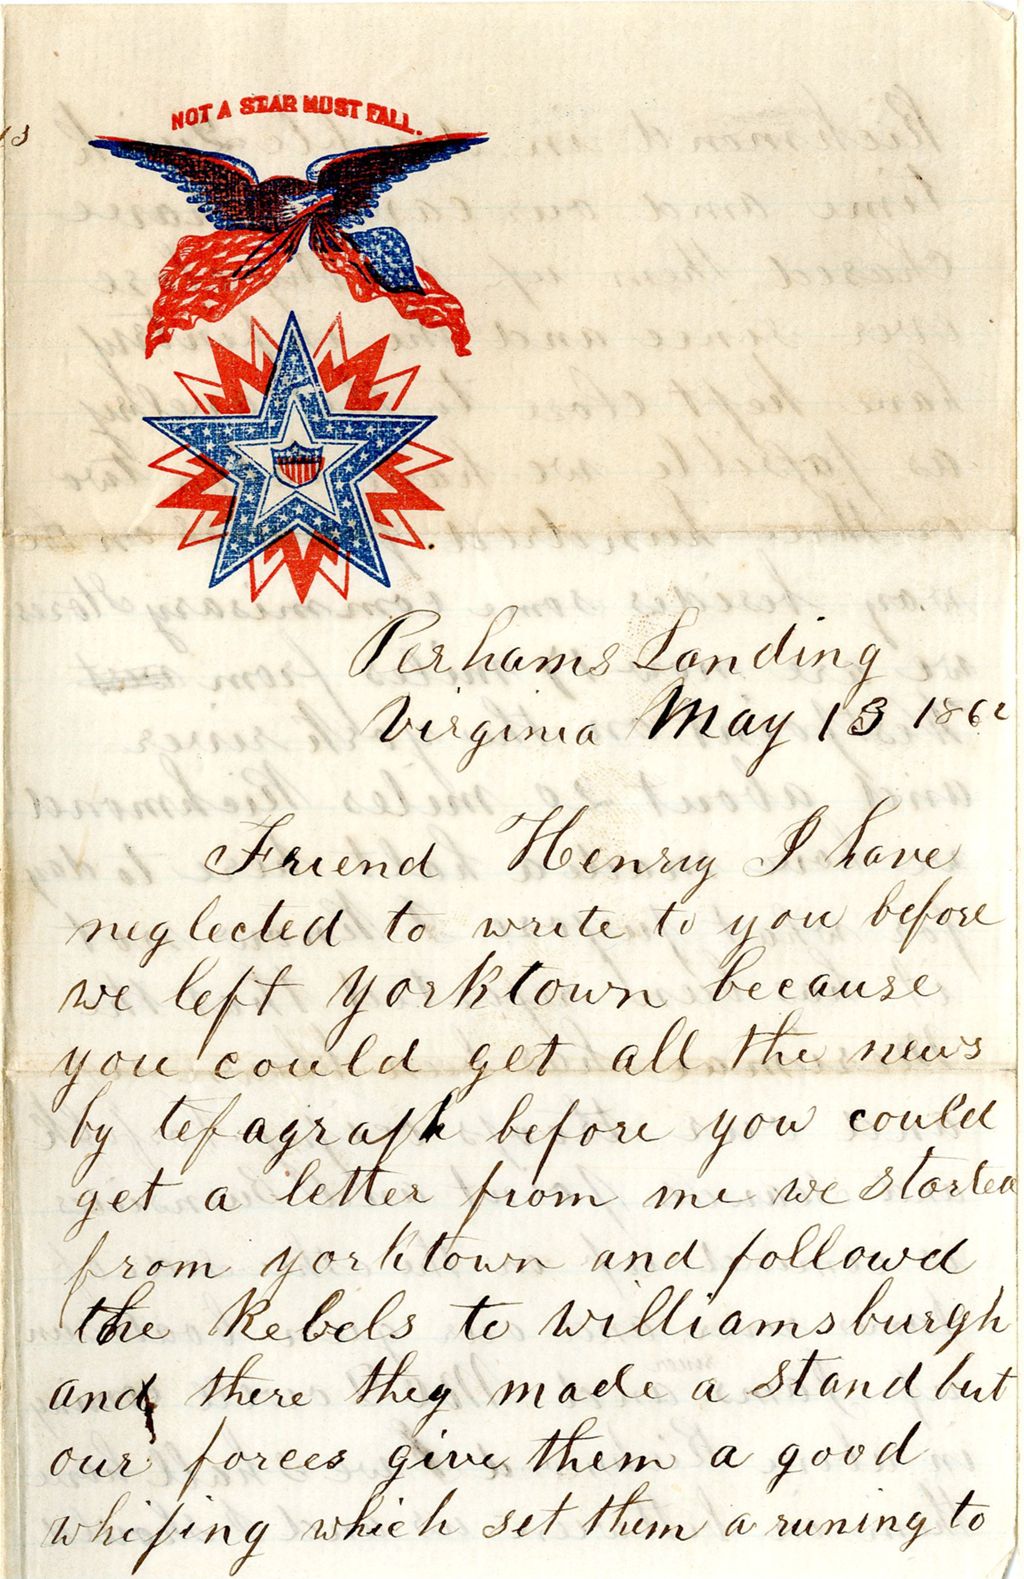 NOT A STAR MUST FALL.
Perhams Landing
Virginia May 13 1862
Friend Henry I have
neglected to write to you before
we left Yorktown because
you could get all the news
by telagraph before you could
get a letter from me we started
from yorktown and followed
the Rebels to Williamsburgh
and there they made a stand but
our forces give them a good
whiping which set them a runing to